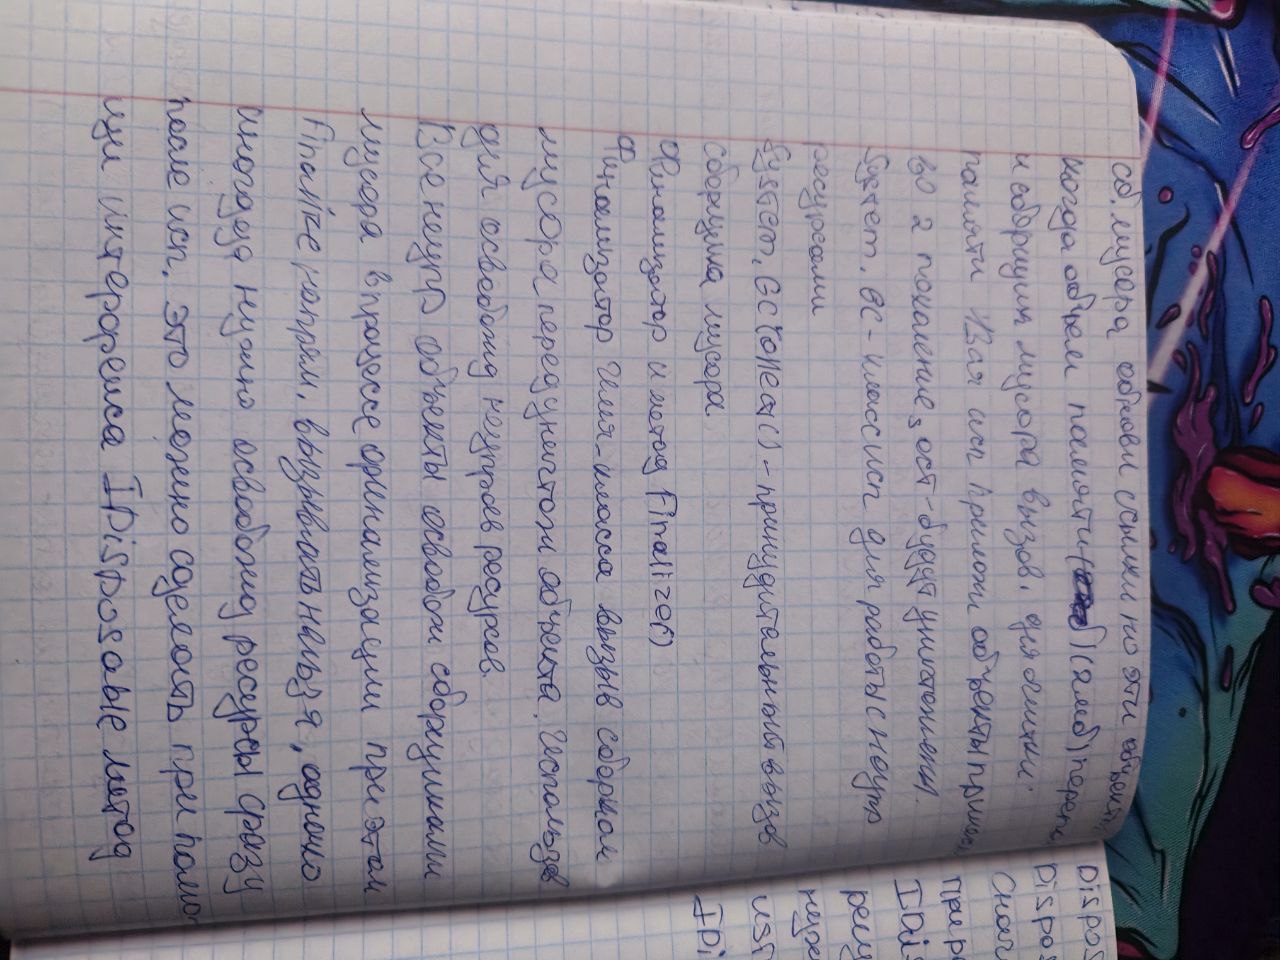 сб. мусора обновл ссылки на эти объекты,
когда объём памяти (сямб) перепол
и сборщик мусора вызов. для очистки
памяти. Увая исп. прилож объекты
во 2 поколение, ост - будут уничтожены.
System. GC - класс исп для работы с неупр
ресурсами
System. GC Collect() - принудительный вызов
сборщика мусора
Финализатор и метод Finalize()
Финализатор имя-класса вызыв сборком
мусора перед уничтож объекта. Использов
для освобожд неуправ ресурсов.
Все неупр объекты освобож сборщиками
мусора в процессе финализации при этом
Finalize напрям. вызывать нельзя, однако
иногда нужно освобожд ресурсы сразу
после исп. это можно сделать при помо
щи интерфейса IDisposable метод
Dispos
Dispos
снач
прер
IDis
ресу
неуп
usi
IDi